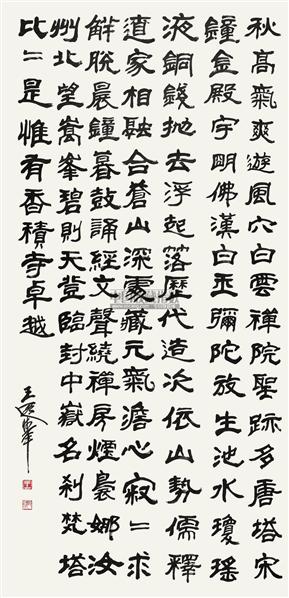 秋高氣爽遊風穴白雲禪院聖跡多唐塔宋
鐘金殿宇明佛漢白玉彌陀放生池水瓊瑤
液銅錢拋去浮起落歷代造次依山勢儒釋
道家相融合蒼山深處藏元氣澹心寂〻求
解脫晨鐘暮鼓誦經文聲繞禪房煙裊娜汝
州北望嵩峯碧則天登臨封中嶽名刹梵塔
比〻是惟有香積寺卓越